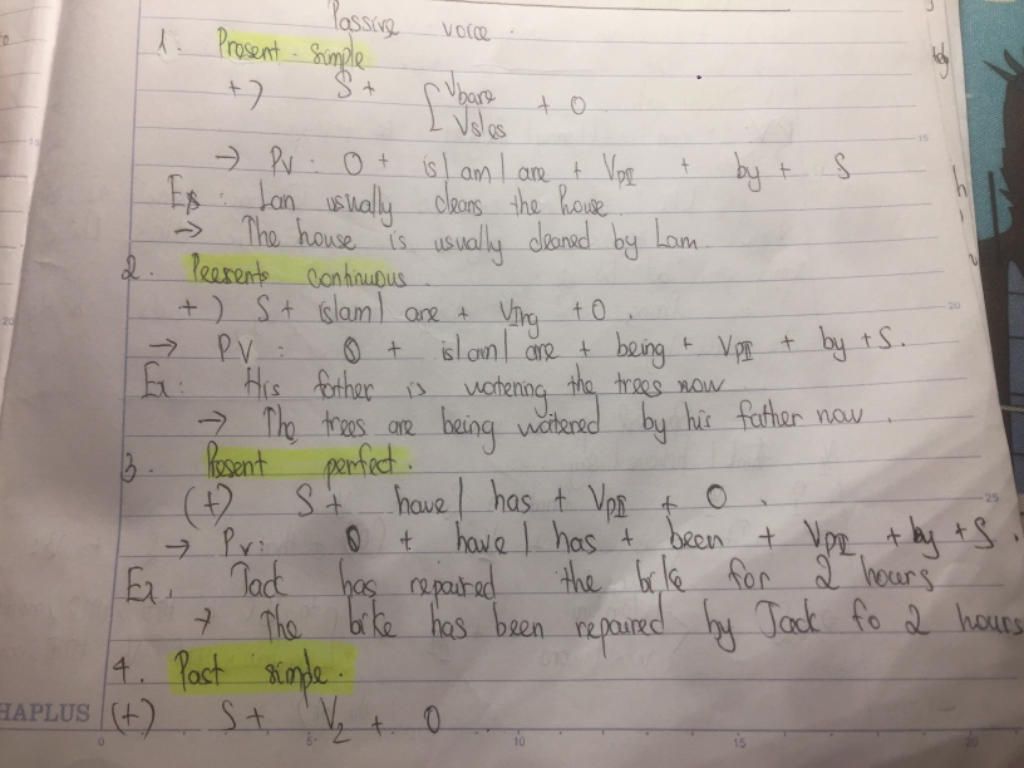 Passive voice.
1. Present simple
+) S + [ Vbare
Vs/es + O
→ PV: O + is/am/are + VPII + by + S
Ex: Lan usually cleans the house.
→ The house is usually cleaned by Lam.
2. Present continuous
+) S + is/am/are + VIng + O.
→ PV: O + is/am/are + being + VPII + by + S.
Ex: His father is watering the trees now
→ The trees are being watered by his father now.
3. Present perfect.
(+) S + have/has + VPII + O.
→ Pv: O + have/has + been + VPII + by + S.
Ex, Jack has repaired the bike for 2 hours
→ The bike has been repaired by Jack fo 2 hours
4. Past simple.
(+) S + V2 + O
HAPLUS
0 5 10 15 20
15
20
25